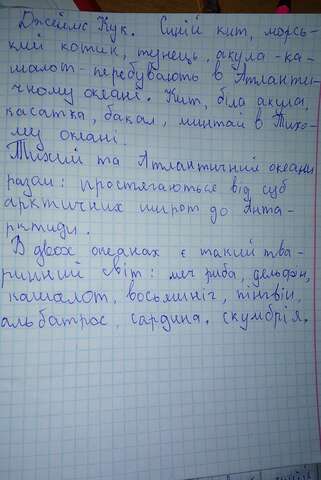 Джеймс Кук. Синій кит, морсь-
кий котик, тунець, акула-ка-
шалот-перебувають в Атланти-
чному океані. Кит, біла акула,
касатка, бакал, минтай в Тихо-
му океані.
Тихий та Атлантичний океани
разом: простягаються від суб
арктичних широт до Анта-
рктиди.
В двох океанах є такий тва-
ринний світ: меч риба, дельфін,
кашалот, восьминіг, пінгвін,
альбатрос, сардина, скумбрія.